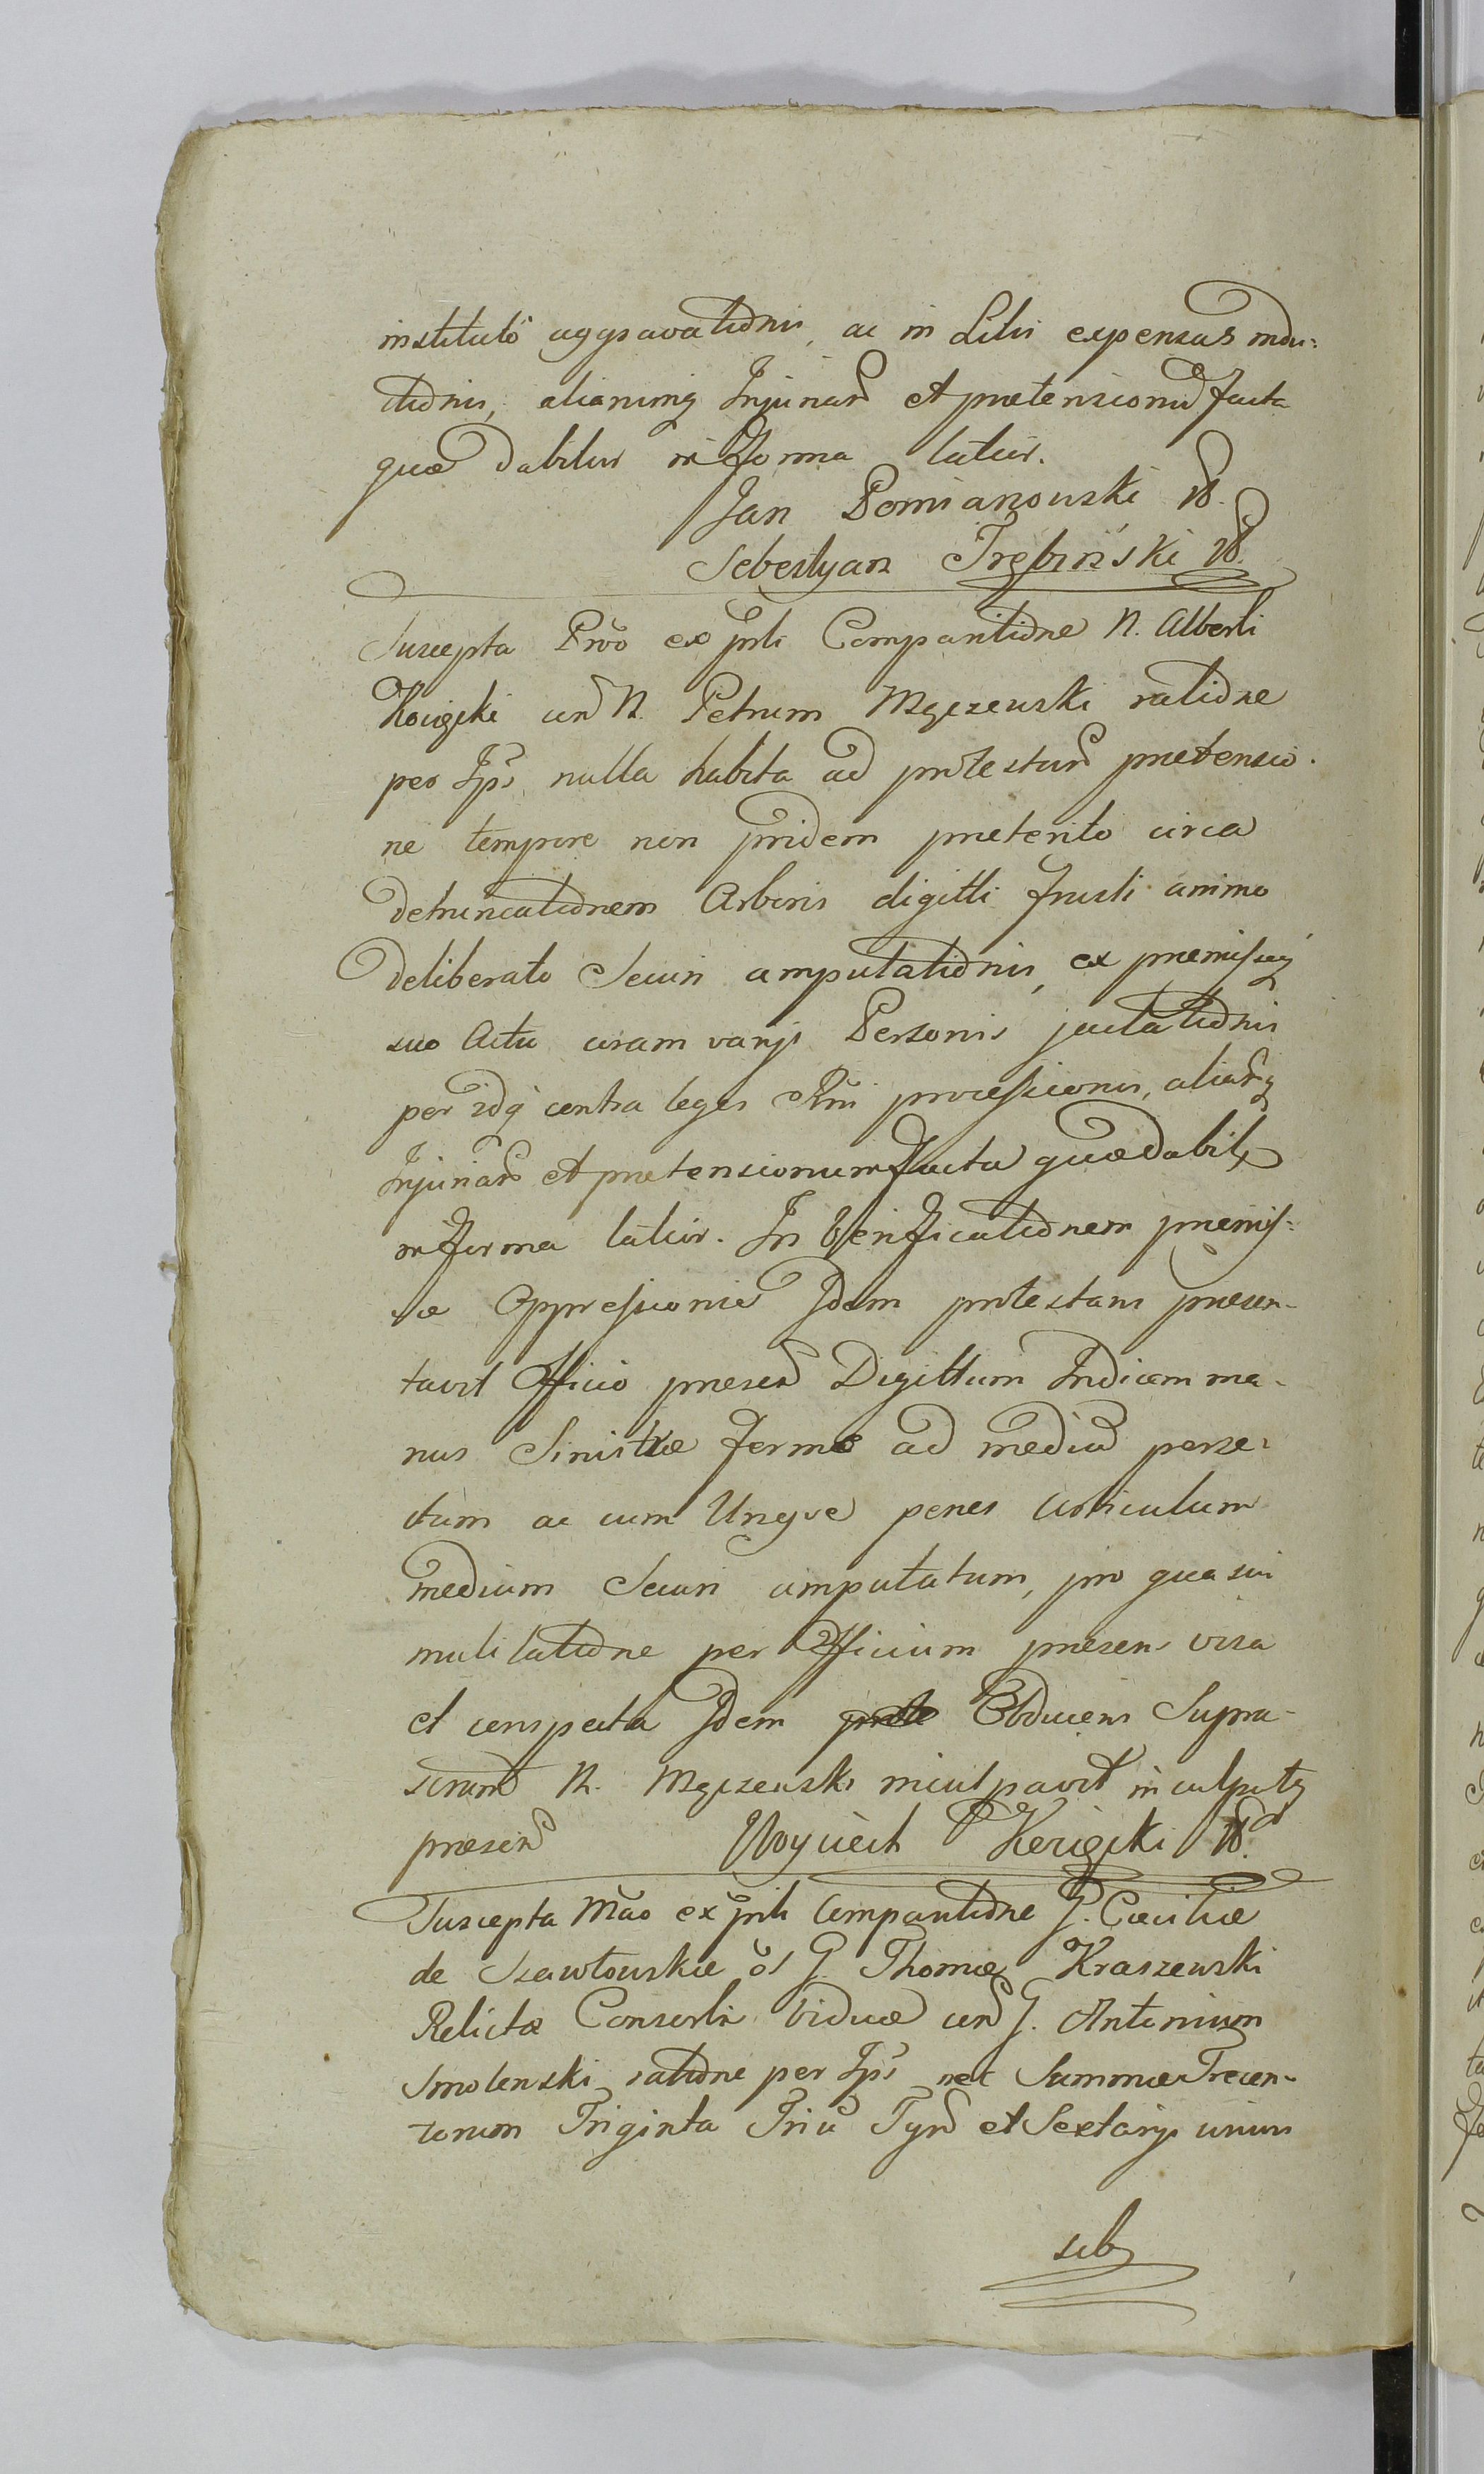 institutõ aggravatiõnis, ac in Litis expensas indu-
ctiõnis, aliarumq Injuriar et prætensionũ facta
quæ dabitur in forma latiõr.
Jan Pomianowski
Sebestyan Trębiński
Suscepta Prõ ex prti Comparitiõne N. Alberti
N. Petrum Mzczewski ratiõne
per Ips nulla habita ad protestan prætensio-
ne tempore non pridem præterito circa
detruncatiõnem Arboris digitti frusti animo
deliberato Securi amputatiõnis, ex præmissoq
suo Actu coram varijs Personis jactatiõnis
per idq contra leges Rni processionis, aliarq
Injuriar et prætensionum facta quæ dabit
in forma latiõr. In Verificatiõnem præmis-
sæ Oppressionis Idem protestans præsen-
tavit Officio præsen Digittum Indicem ma-
nus Sinistræ ferme ad mediũ perse-
ctum ac cum Ungve penes Articulum
medium Securi amputatum, pro qua sui
mutilatiõne per Officium præsens visa
et conspecta Idem Obducens Supra-
N. Mzczewski inculpavit inculpatq
præsen Woyciech
Suscepta Mão ex prti Comparitiõne G. Cæciliæ
de Szawłowskie õl G. Thomæ Kraszewski
Relictæ Consortis Viduæ con G. Antonium
Smolenski ratiõne per Ips net Summæ Trecen-
torum Triginta Triũ Tyn et Sextarijs unius